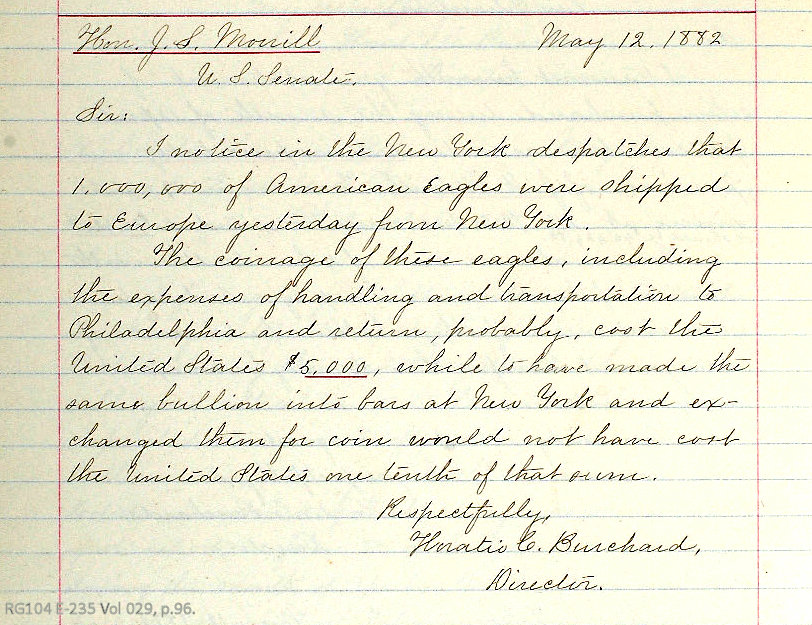 Hon. J. S. Morrill May 12, 1882
U. S. Senate.
Sir:
I notice in the New York despatches that
1,000,000 of American Eagles were shipped
to Europe yesterday from New York.
The coinage of these eagles, including
the expenses of handling and transportation to
Philadelphia and return, probably, cost the
United States $5,000, while to have made the
same bullion into bars at New York and ex-
changed them for coin would not have cost
the United States one tenth of that sum.
Respectfully,
Horatio C. Burchard,
Director.
RG104 E-235 Vol 029, p.96.